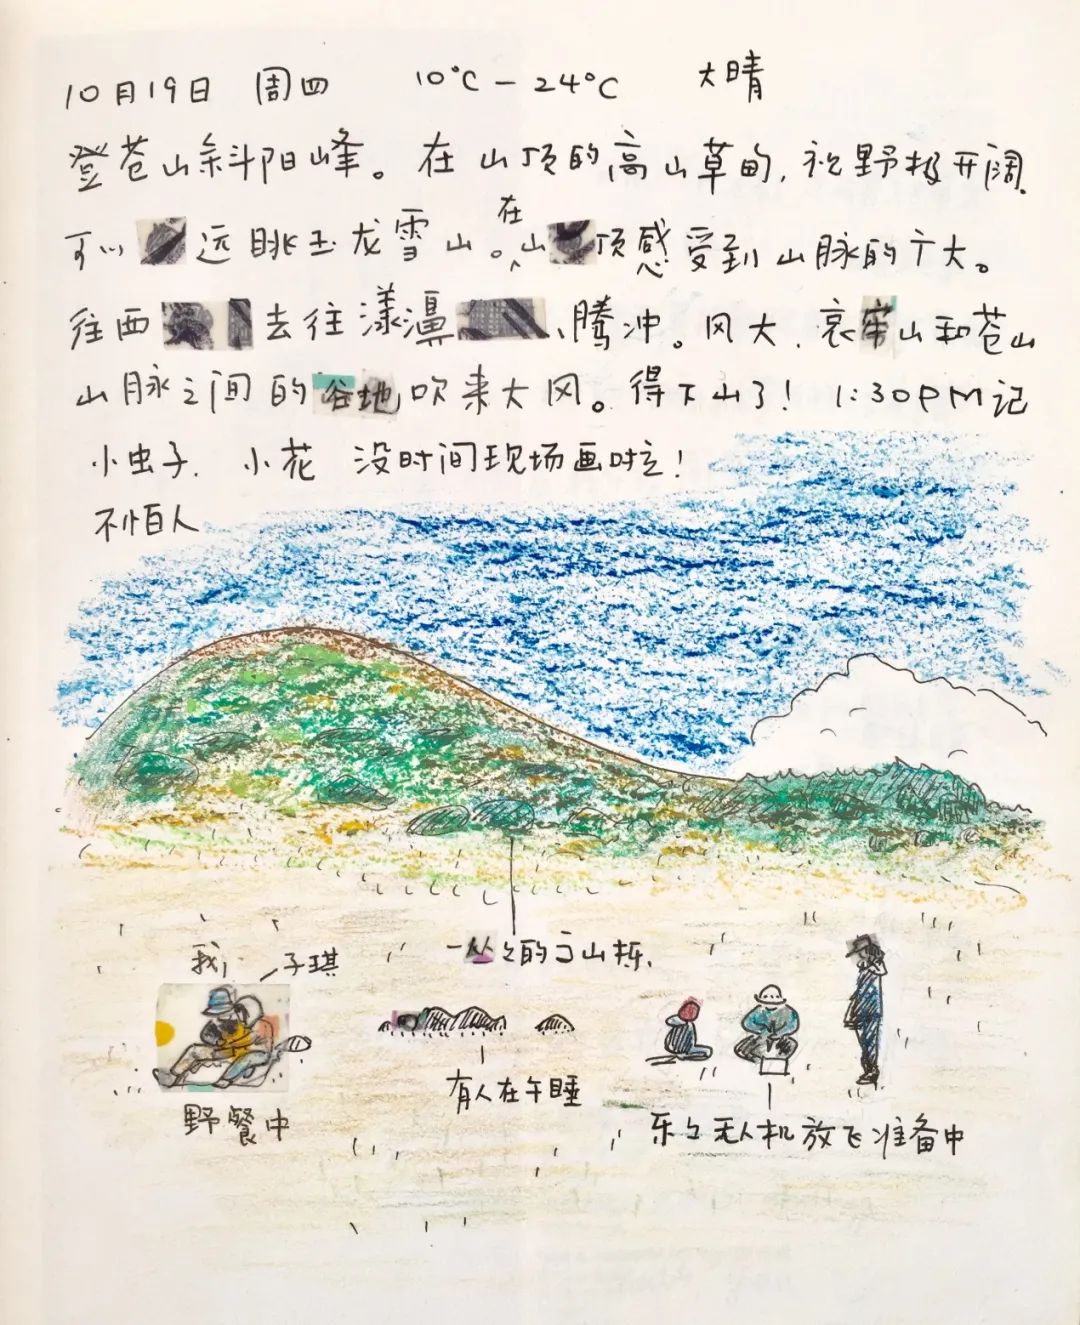 10月19日 周四 10°C-24°C 大晴
登苍山斜阳峰。在山顶的高山草甸,视野极开阔
可以远眺玉龙雪山。在山顶感受到山脉的广大。
往西去往漾濞、腾冲。风大.哀牢山和苍山
山脉之间的谷地吹来大风。得下山了! 1:30PM记
小虫子. 小花 没时间现场画啦!
不怕人
一丛々的山栎.
我 子琪
有人在午睡
野餐中
乐々无人机放飞准备中